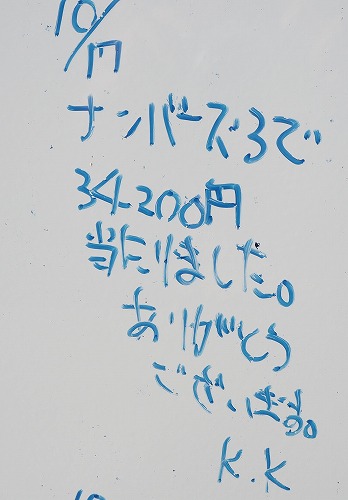 10/17
ナンバーズ3で
34.200円
当たりました。
ありがとう
ございます。
K.K
10